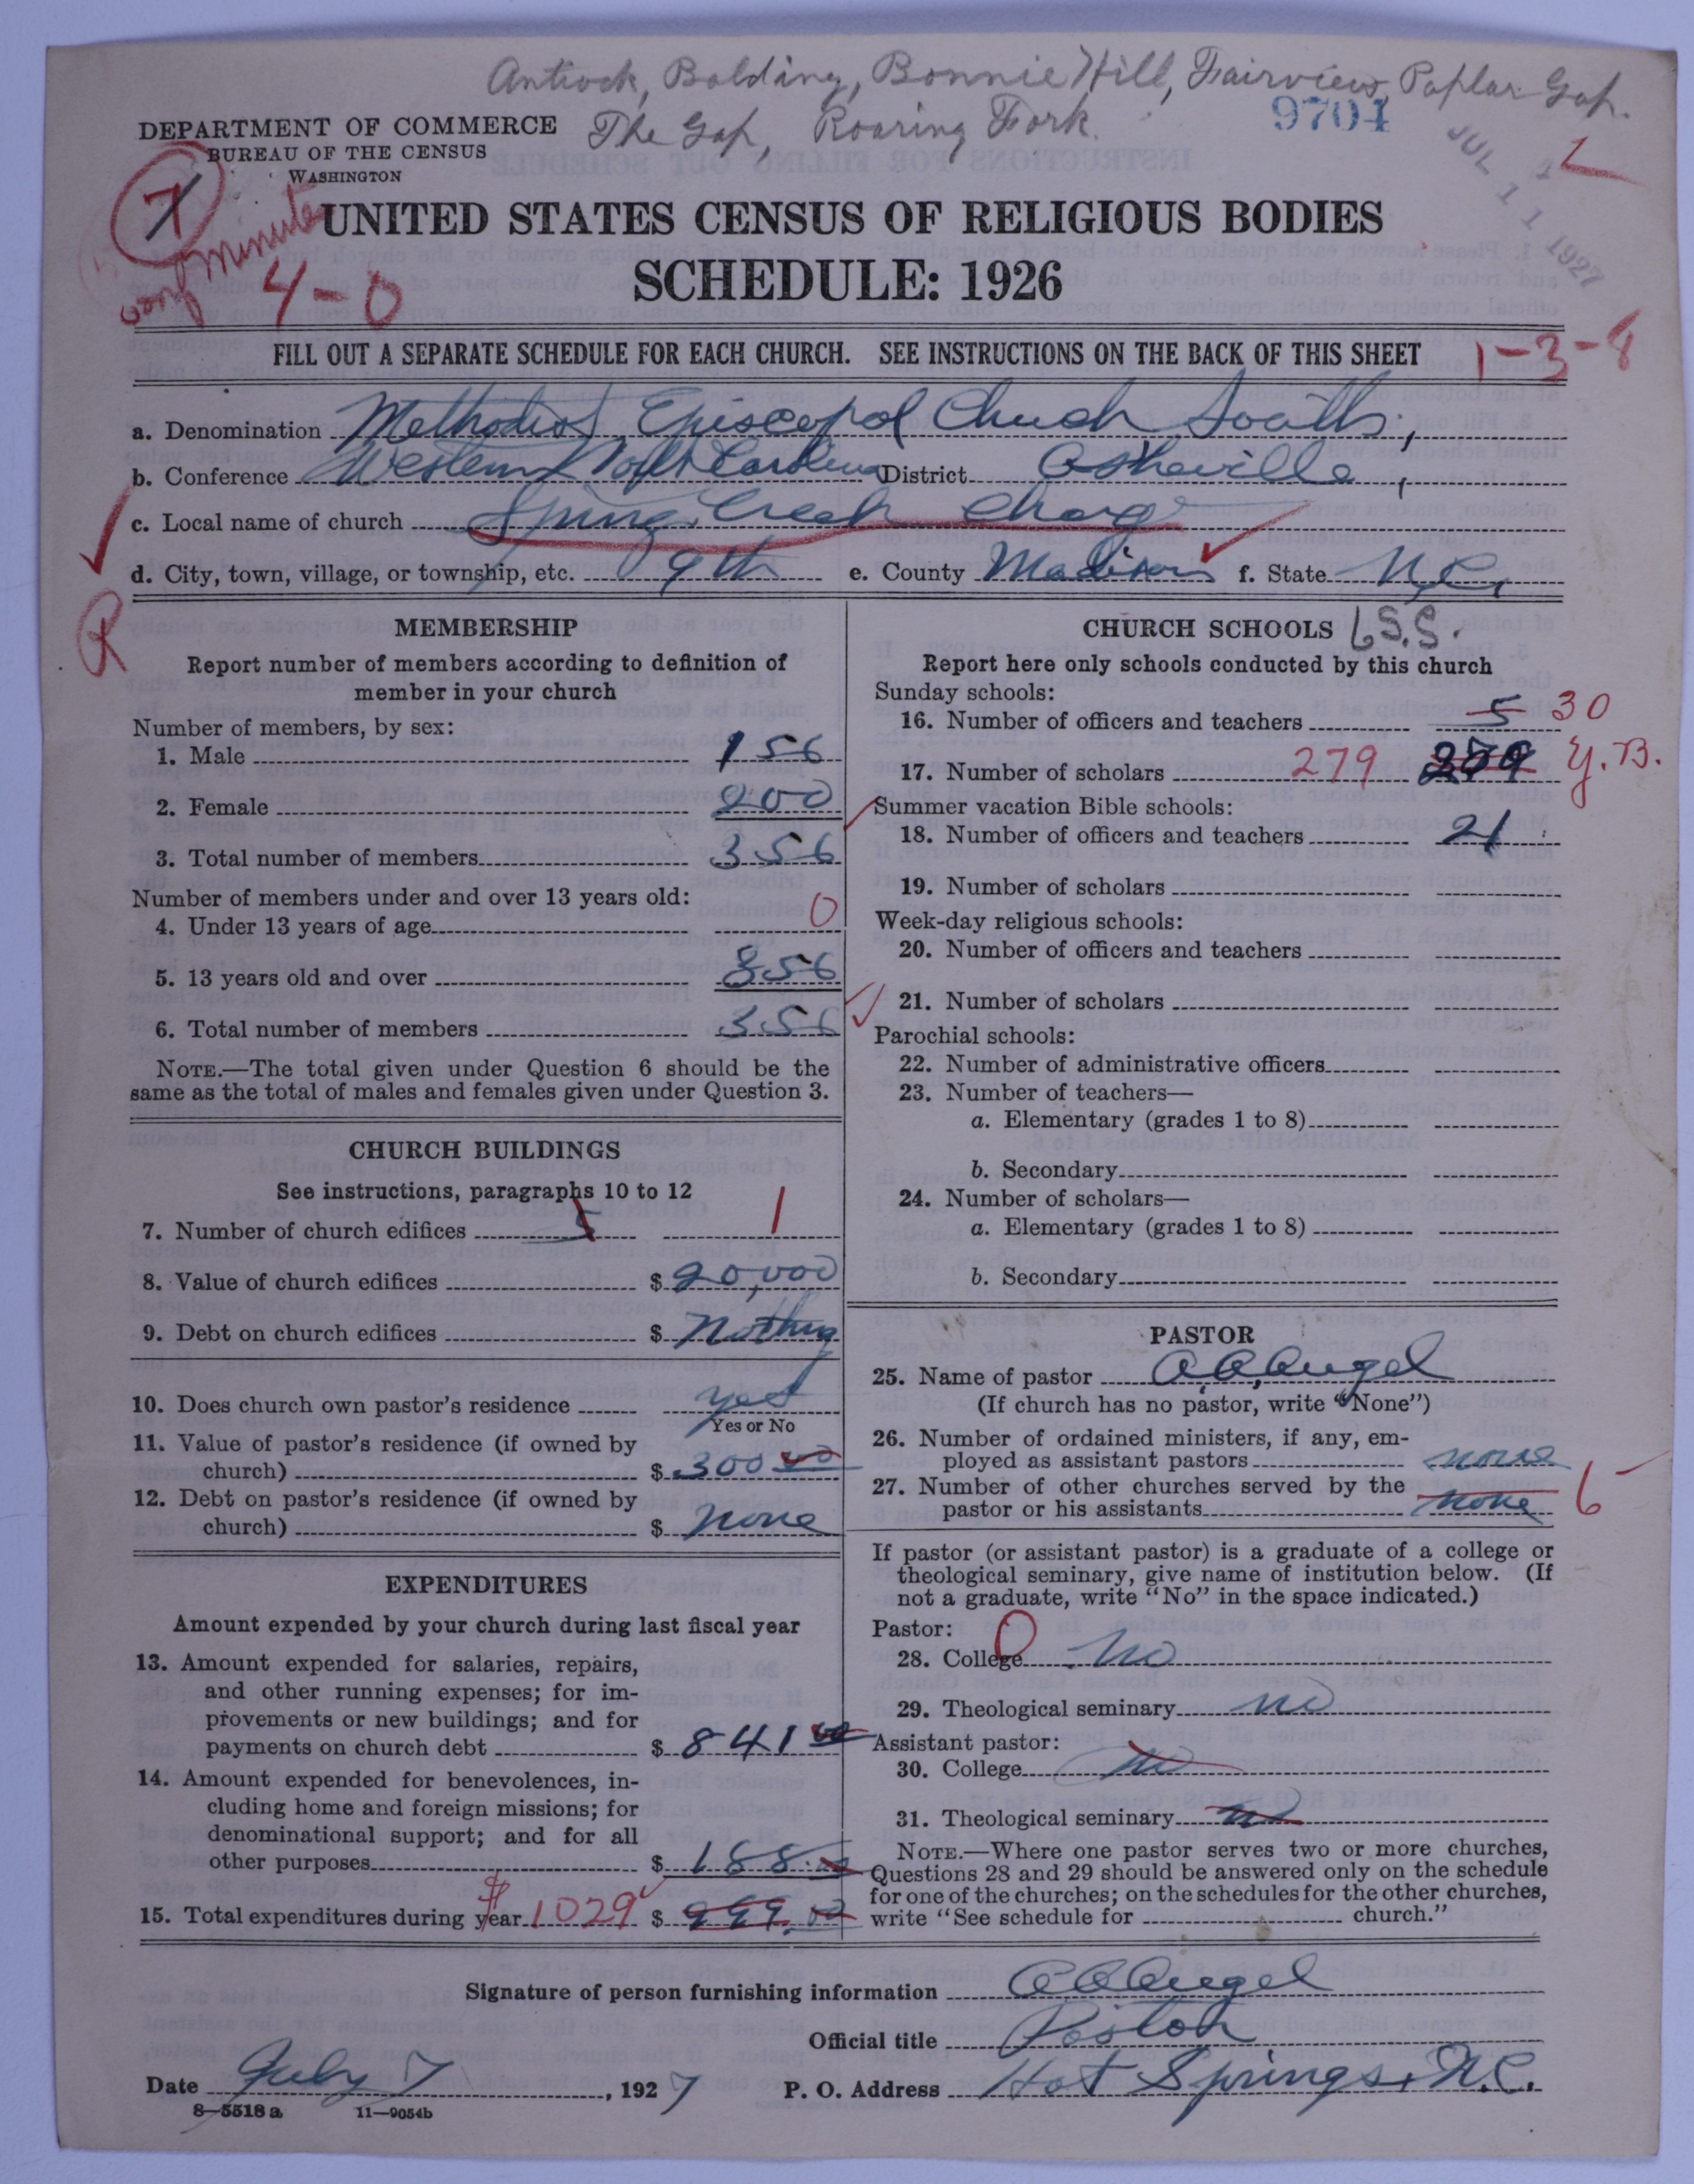 Antioch, Balding, Bonnie Hill, Fairview, Poplar Gap.
The Gap, Roaring Fork.
9704
JUL 11 1927
DEPARTMENT OF COMMERCE
BUREAU OF THE CENSUS
WASHINGTON
7
conf minutes
4-0
UNITED STATES CENSUS OF RELIGIOUS BODIES
SCHEDULE: 1926
FILL OUT A SEPARATE SCHEDULE FOR EACH CHURCH. SEE INSTRUCTIONS ON THE BACK OF THIS SHEET
1-3-8
a. Denomination Methodist Episcopal Church South,
b. Conference Western North Carolina District Asheville,
c. Local name of church Spring Creek Charge
d. City, town, village, or township, etc. 9th e. County Madison f. State N.C.
R
MEMBERSHIP
Report number of members according to definition of
member in your church
Number of members, by sex:
1. Male 156
2. Female 200
3. Total number of members 356
Number of members under and over 13 years old:
4. Under 13 years of age 0
5. 13 years old and over 356
6. Total number of members 356
NOTE.—The total given under Question 6 should be the
same as the total of males and females given under Question 3.
CHURCH BUILDINGS
See instructions, paragraphs 10 to 12
7. Number of church edifices 5 1
8. Value of church edifices $ 20,000
9. Debt on church edifices $ Nothing
10. Does church own pastor's residence yes
Yes or No
11. Value of pastor's residence (if owned by
church) $ 300 00
12. Debt on pastor's residence (if owned by
church) $ none
EXPENDITURES
Amount expended by your church during last fiscal year
13. Amount expended for salaries, repairs,
and other running expenses; for im-
provements or new buildings; and for
payments on church debt $ 841 00
14. Amount expended for benevolences, in-
cluding home and foreign missions; for
denominational support; and for all
other purposes $ 188.
15. Total expenditures during year $1029 $ 999.00
CHURCH SCHOOLS 6 S.S.
Report here only schools conducted by this church
Sunday schools:
16. Number of officers and teachers 5 30
17. Number of scholars 279 Y.B.
Summer vacation Bible schools:
18. Number of officers and teachers 21
19. Number of scholars
Week-day religious schools:
20. Number of officers and teachers
21. Number of scholars
Parochial schools:
22. Number of administrative officers
23. Number of teachers—
a. Elementary (grades 1 to 8)
b. Secondary
24. Number of scholars—
a. Elementary (grades 1 to 8)
b. Secondary
PASTOR
25. Name of pastor A.A. Angel
(If church has no pastor, write "None")
26. Number of ordained ministers, if any, em-
ployed as assistant pastors none
27. Number of other churches served by the
pastor or his assistants none 6
If pastor (or assistant pastor) is a graduate of a college or
theological seminary, give name of institution below. (If
not a graduate, write "No" in the space indicated.)
Pastor: 0
28. College no
29. Theological seminary no
Assistant pastor:
30. College no
31. Theological seminary no
NOTE.—Where one pastor serves two or more churches,
Questions 28 and 29 should be answered only on the schedule
for one of the churches; on the schedules for the other churches,
write "See schedule for church."
Signature of person furnishing information A A Angel
Official title Pastor
Date July 7, 1927 P. O. Address Hot Springs, N.C.
8—5518 a 11—9054b